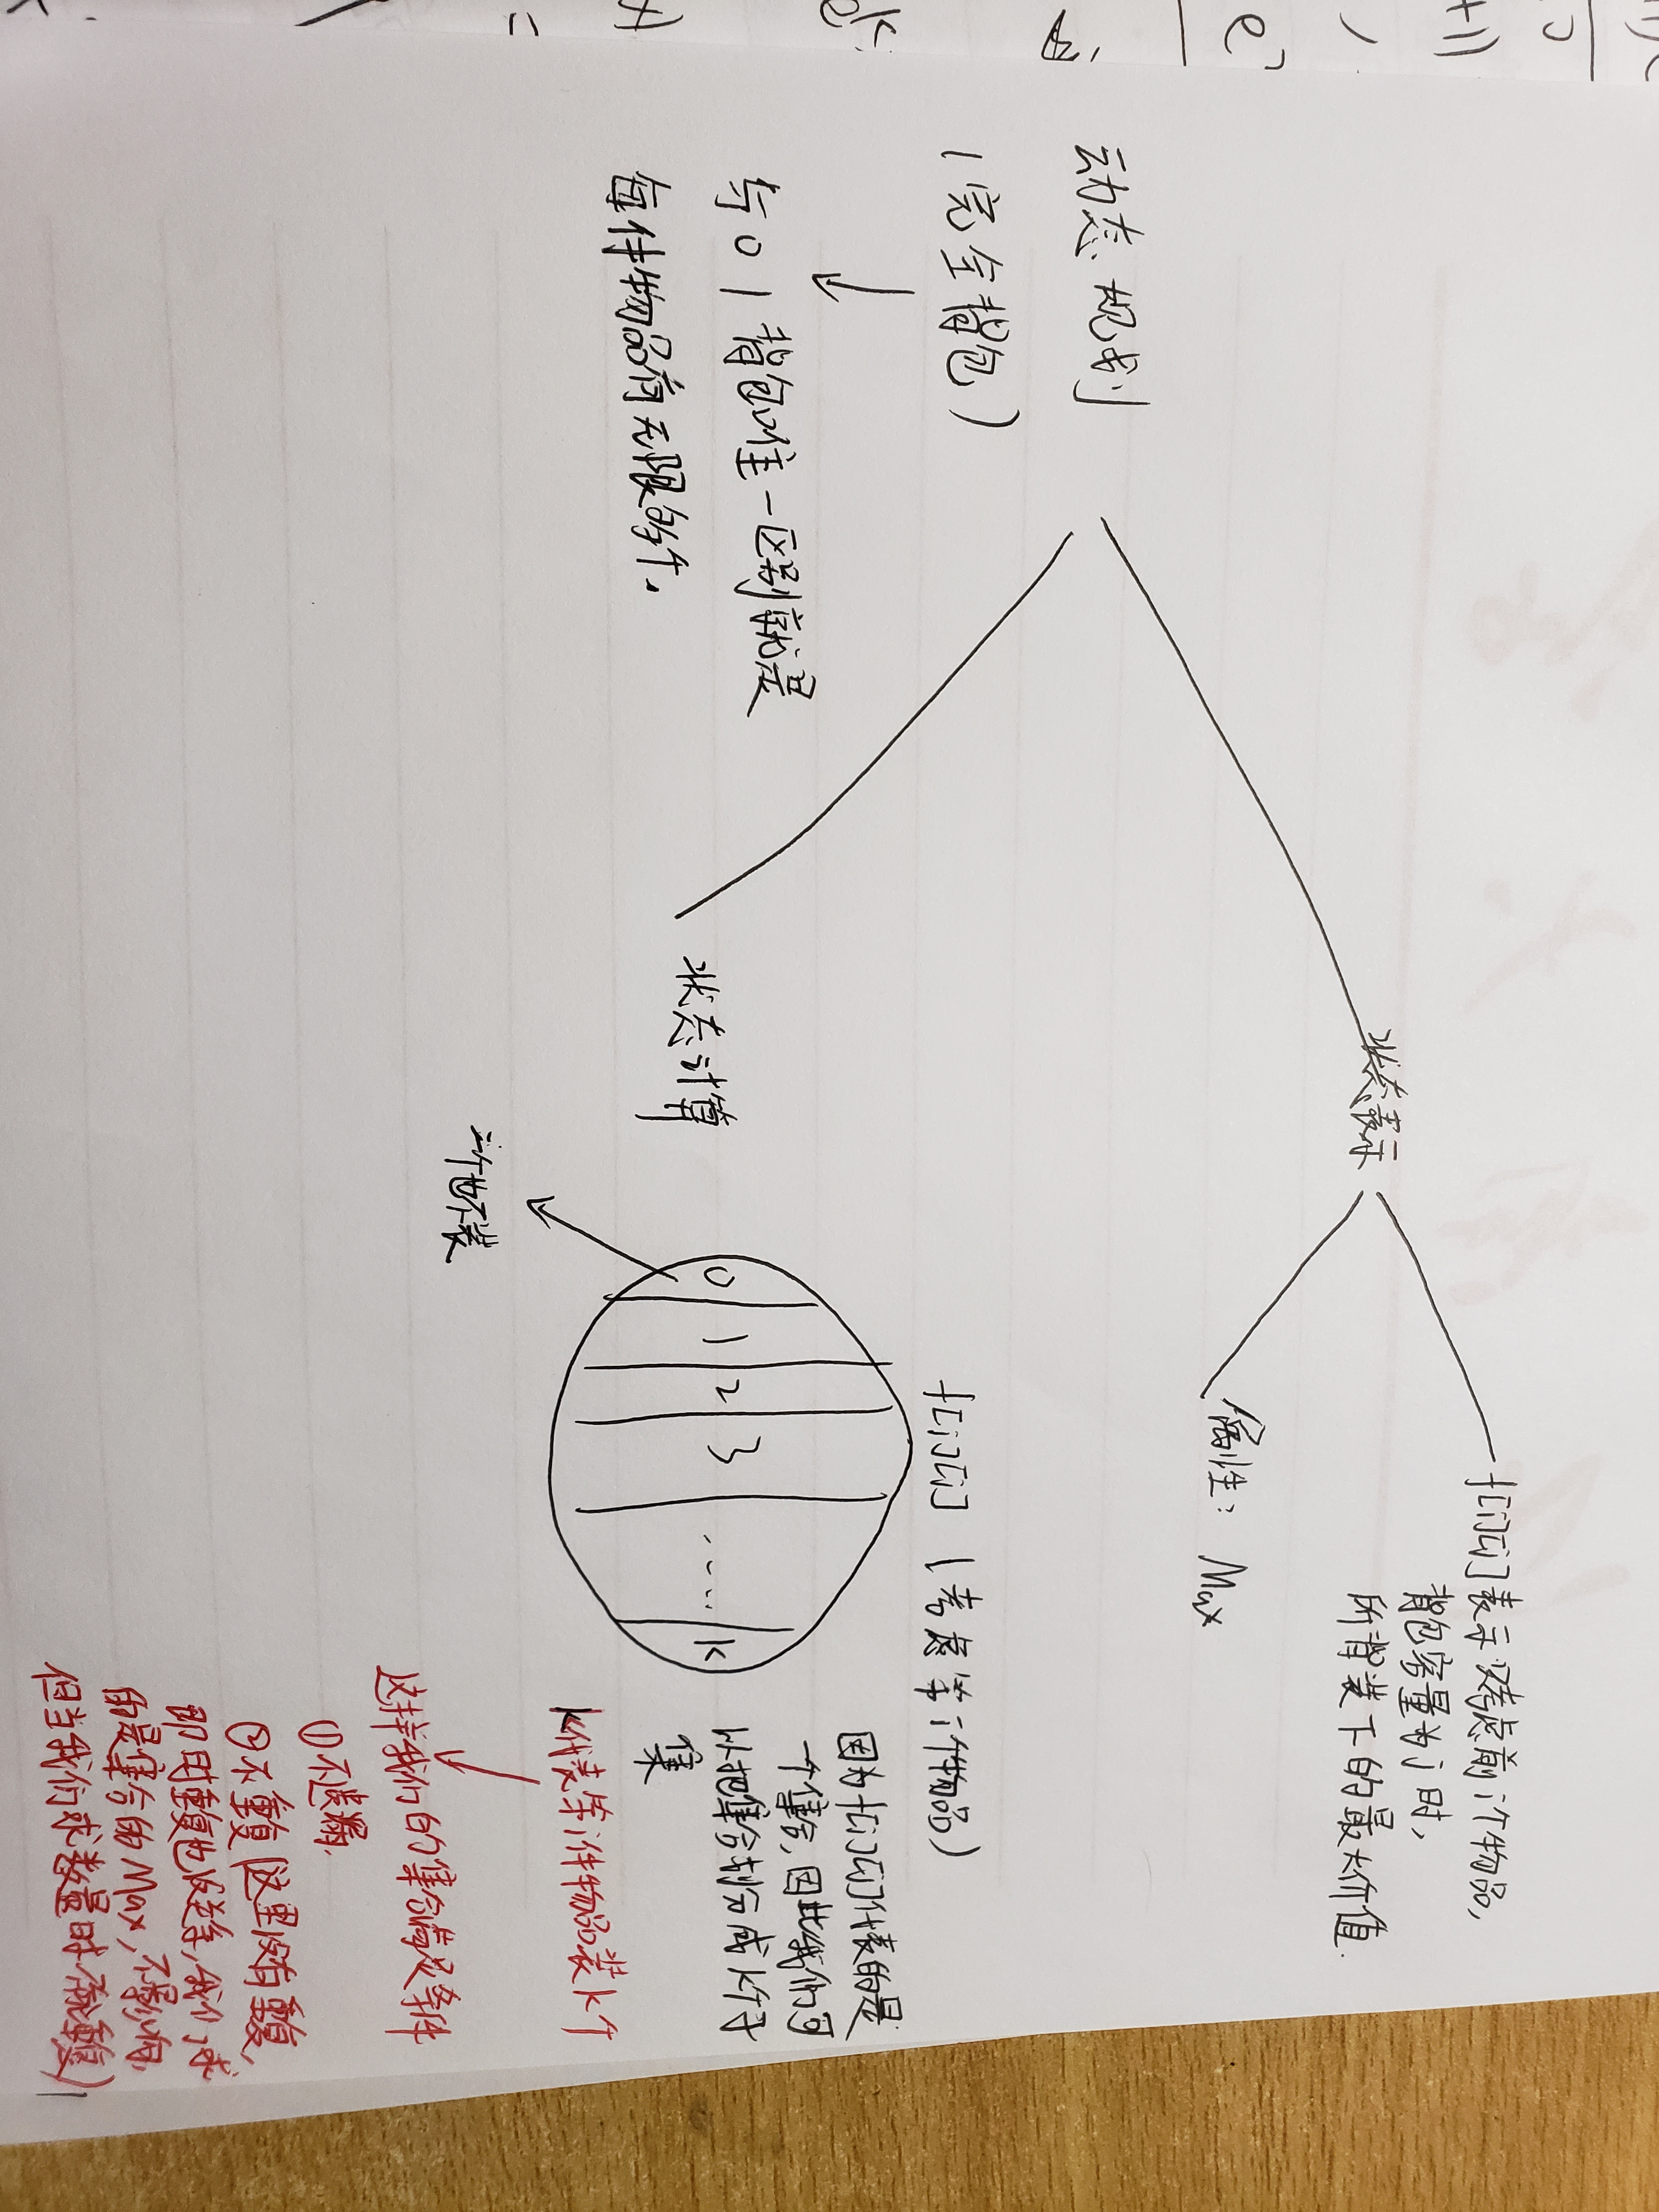 动态规划
(完全背包)
与01背包唯一区别就是
每件物品有无限多个.
状态表示
f[i][j]表示考虑前i个物品,
背包容量为j时,
所背装下的最大价值.
属性: Max
状态计算
f[i][j] (考虑第i个物品)
0
1
2
3
.....
k
因为f[i][j]代表的是
一个集合,因此我们可
以把集合划分成k个子
集
k代表第i件物品装k个
这样我们的集合满足条件
①不遗漏.
②不重复(这里没有重复,
即时重复也没关系,我们求
的是集合的Max,不影响.
但当我们求数量时不能重复)